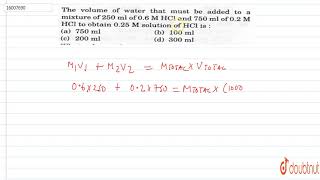 16007690
The volume of water that must be added to a
mixture of 250 ml of 0.6 M HCl and 750 ml of 0.2 M
HCl to obtain 0.25 M solution of HCl is :
(a) 750 ml (b) 100 ml
(c) 200 ml (d) 300 ml
M₁V₁ + M₂V₂ = MTOTAL × VTOTAL
0.6×250 + 0.2×750 = MTOTAL × (1000
doubtnut